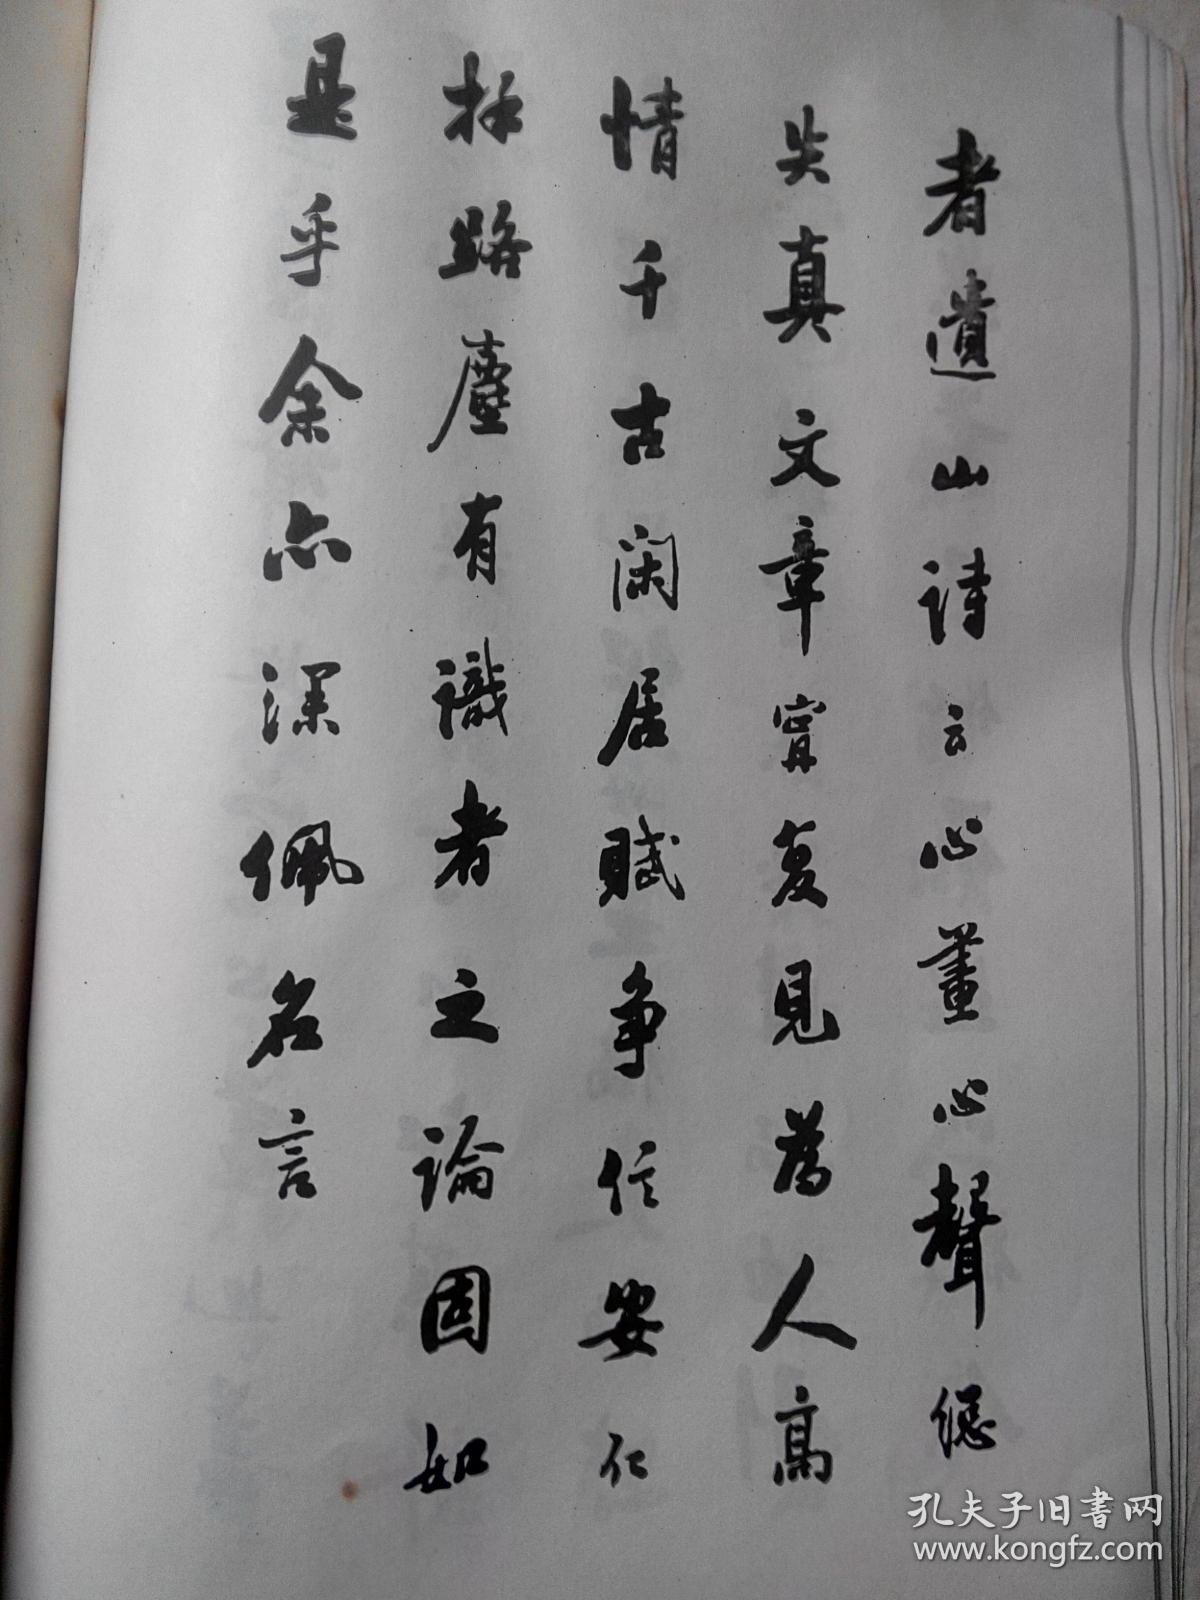 者遺山詩云心畫心聲總
失真文章甯复見為人高
情千古閑居賦爭信安仁
拜路塵有識者之論固如
是乎余亦深佩名言
孔夫子旧书网
www.kongfz.com